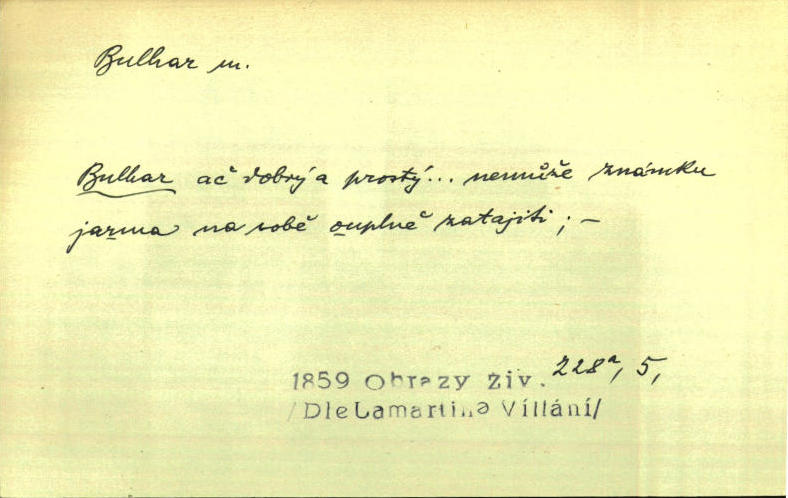 Bulhar m.
Bulhar ač dobrý a prostý... nemůže známku
jazma na sobě ouplně zatajiti; –
1859 Obrazy živ. 228a, 5,
/Dle Lamartina Víllání/